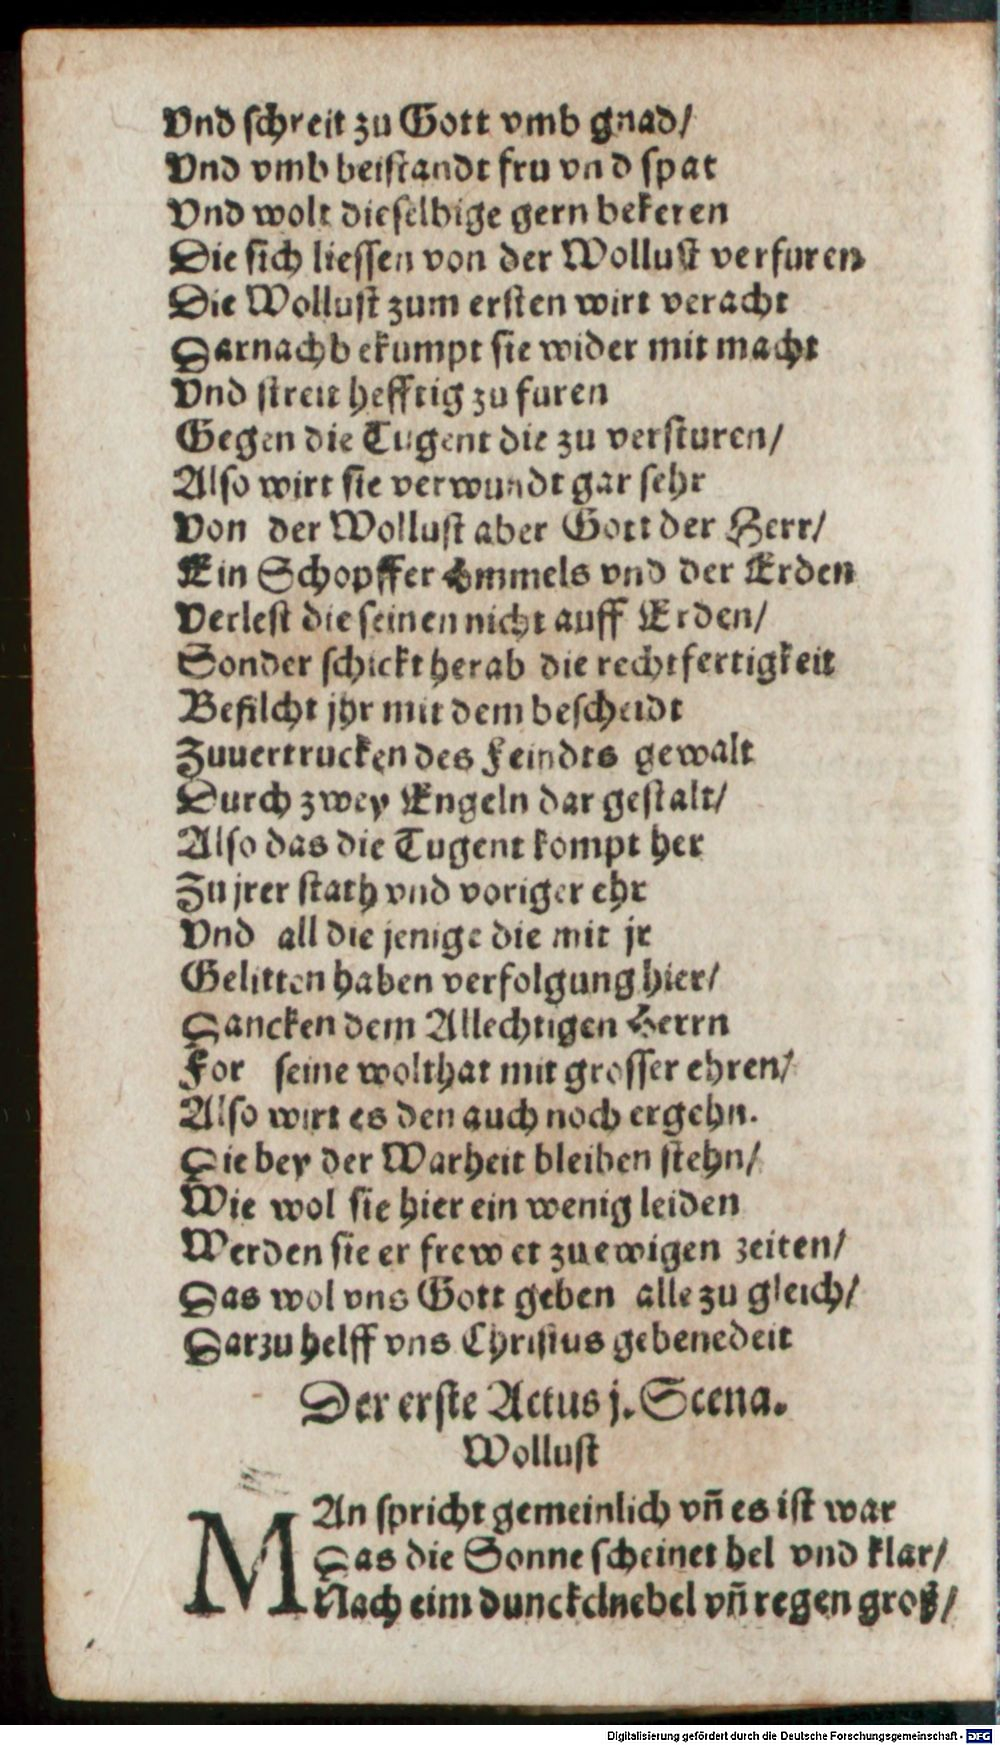 Vnd schreit zu Gott vmb gnad/
Vnd vmb beistandt fru vnd spat
Vnd wolt dieselbige gern bekeren
Die sich liessen von der Wollust verfuren
Die Wollust zum ersten wirt veracht
Darnach bekumpt sie wider mit macht
Vnd streit hefftig zu furen
Gegen die Tugent die zu versturen/
Also wirt sie verwundt gar sehr
Von der Wollust aber Gott der Herr/
Ein Schopffer Himmels vnd der Erden
Verlest die seinen nicht auff Erden/
Sonder schickt herab die rechtfertigkeit
Befilcht jhr mit dem bescheidt
Zuuertrucken des Feindts gewalt
Durch zwey Engeln dar gestalt/
Also das die Tugent kompt her
Zu jrer stath vnd voriger ehr
Vnd all die jenige die mit jr
Gelitten haben verfolgung hier/
Dancken dem Allechtigen Herrn
For seine wolthat mit grosser ehren/
Also wirt es den auch noch ergehn.
Die bey der Warheit bleiben stehn/
Wie wol sie hier ein wenig leiden
Werden sie er frewet zu ewigen zeiten/
Das wol vns Gott geben alle zu gleich/
Darzu helff vns Christus gebenedeit
Der erste Actus j. Scena.
Wollust
MAn spricht gemeinlich vñ es ist war
Das die Sonne scheinet hel vnd klar/
Nach eim dunckelnebel vñ regen groß/
Digitalisierung gefördert durch die Deutsche Forschungsgemeinschaft - DFG